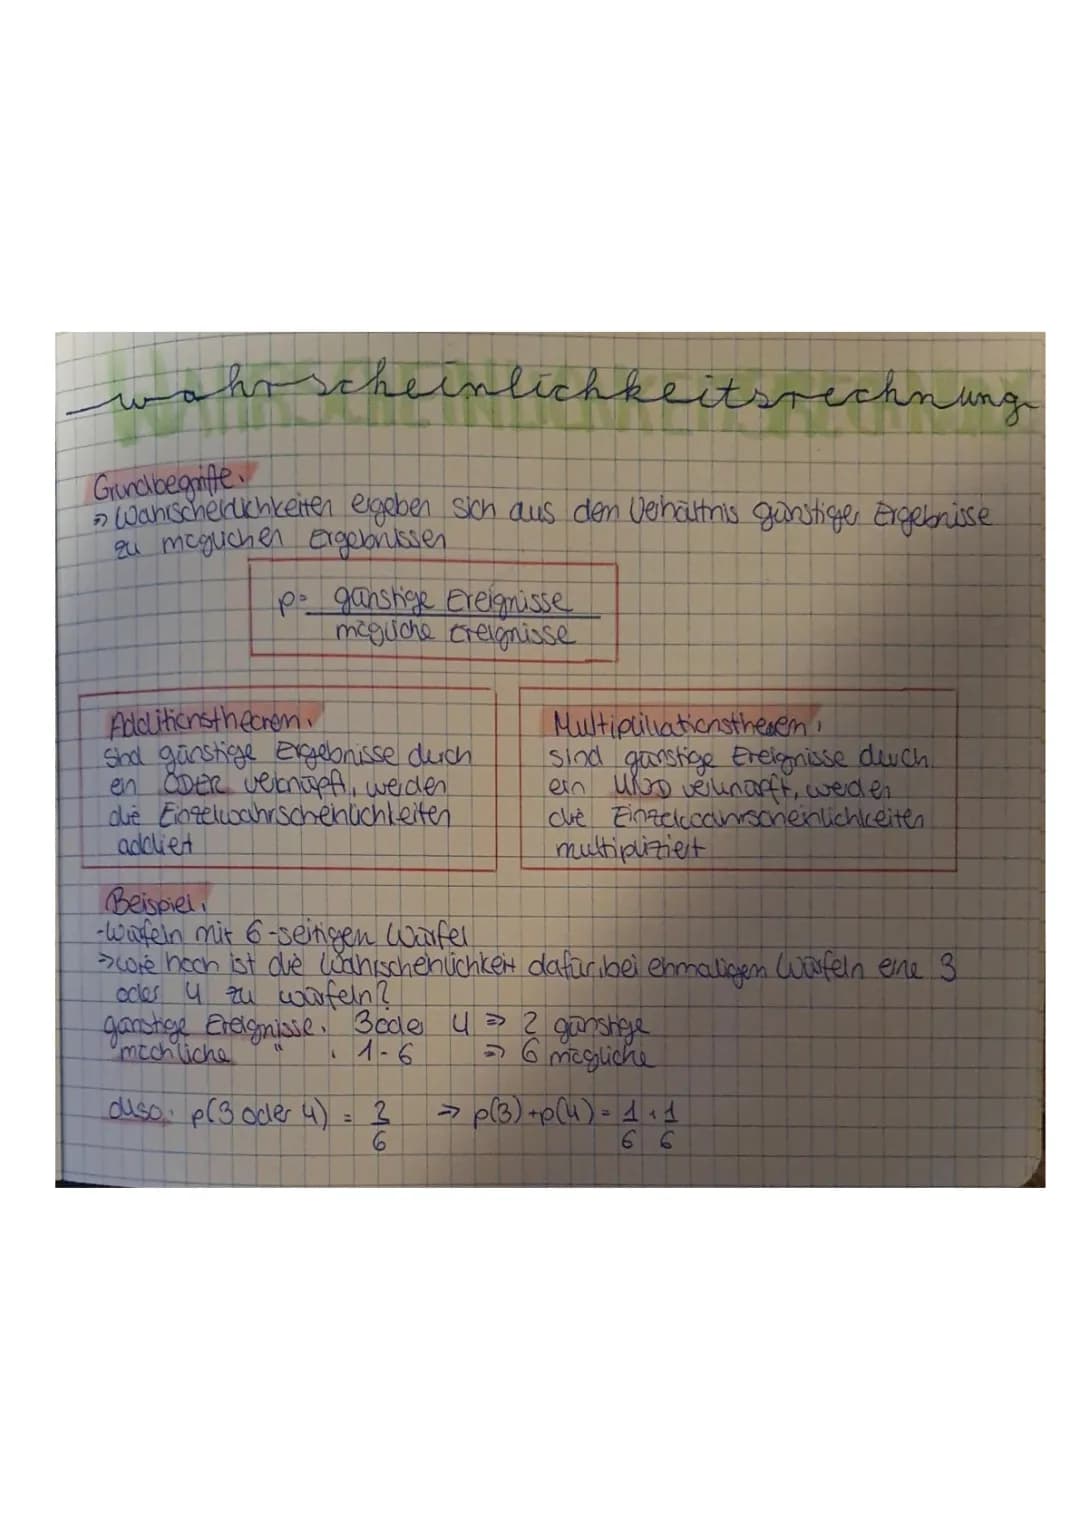 wahrscheinlichkeitsrechnung
Grundbegriffe:
=> Wahrscheinlichkeiten ergeben sich aus dem Verhältnis günstiger Ergebnisse
zu möglichen Ergebnissen
p= günstige Ereignisse
mögliche Ereignisse
Additionstheorem:
Sind günstige Ergebnisse durch
ein ODER verknüpft, werden
die Einzelwahrscheinlichkeiten
addiert
Multiplikationstheorem:
sind günstige Ereignisse durch
ein UND verknüpft, werden
die Einzelwahrscheinlichkeiten
multipliziert
Beispiel:
-Würfeln mit 6-seitigen Würfel
=> wie hoch ist die Wahrscheinlichkeit dafür, bei einmaligem Würfeln eine 3
oder 4 zu würfeln?
günstige Ereignisse: 3 oder 4 => 2 günstige
möchliche " : 1-6 => 6 mögliche
also: p(3 oder 4) = 2/6 => p(3)+p(4) = 1/6 + 1/6